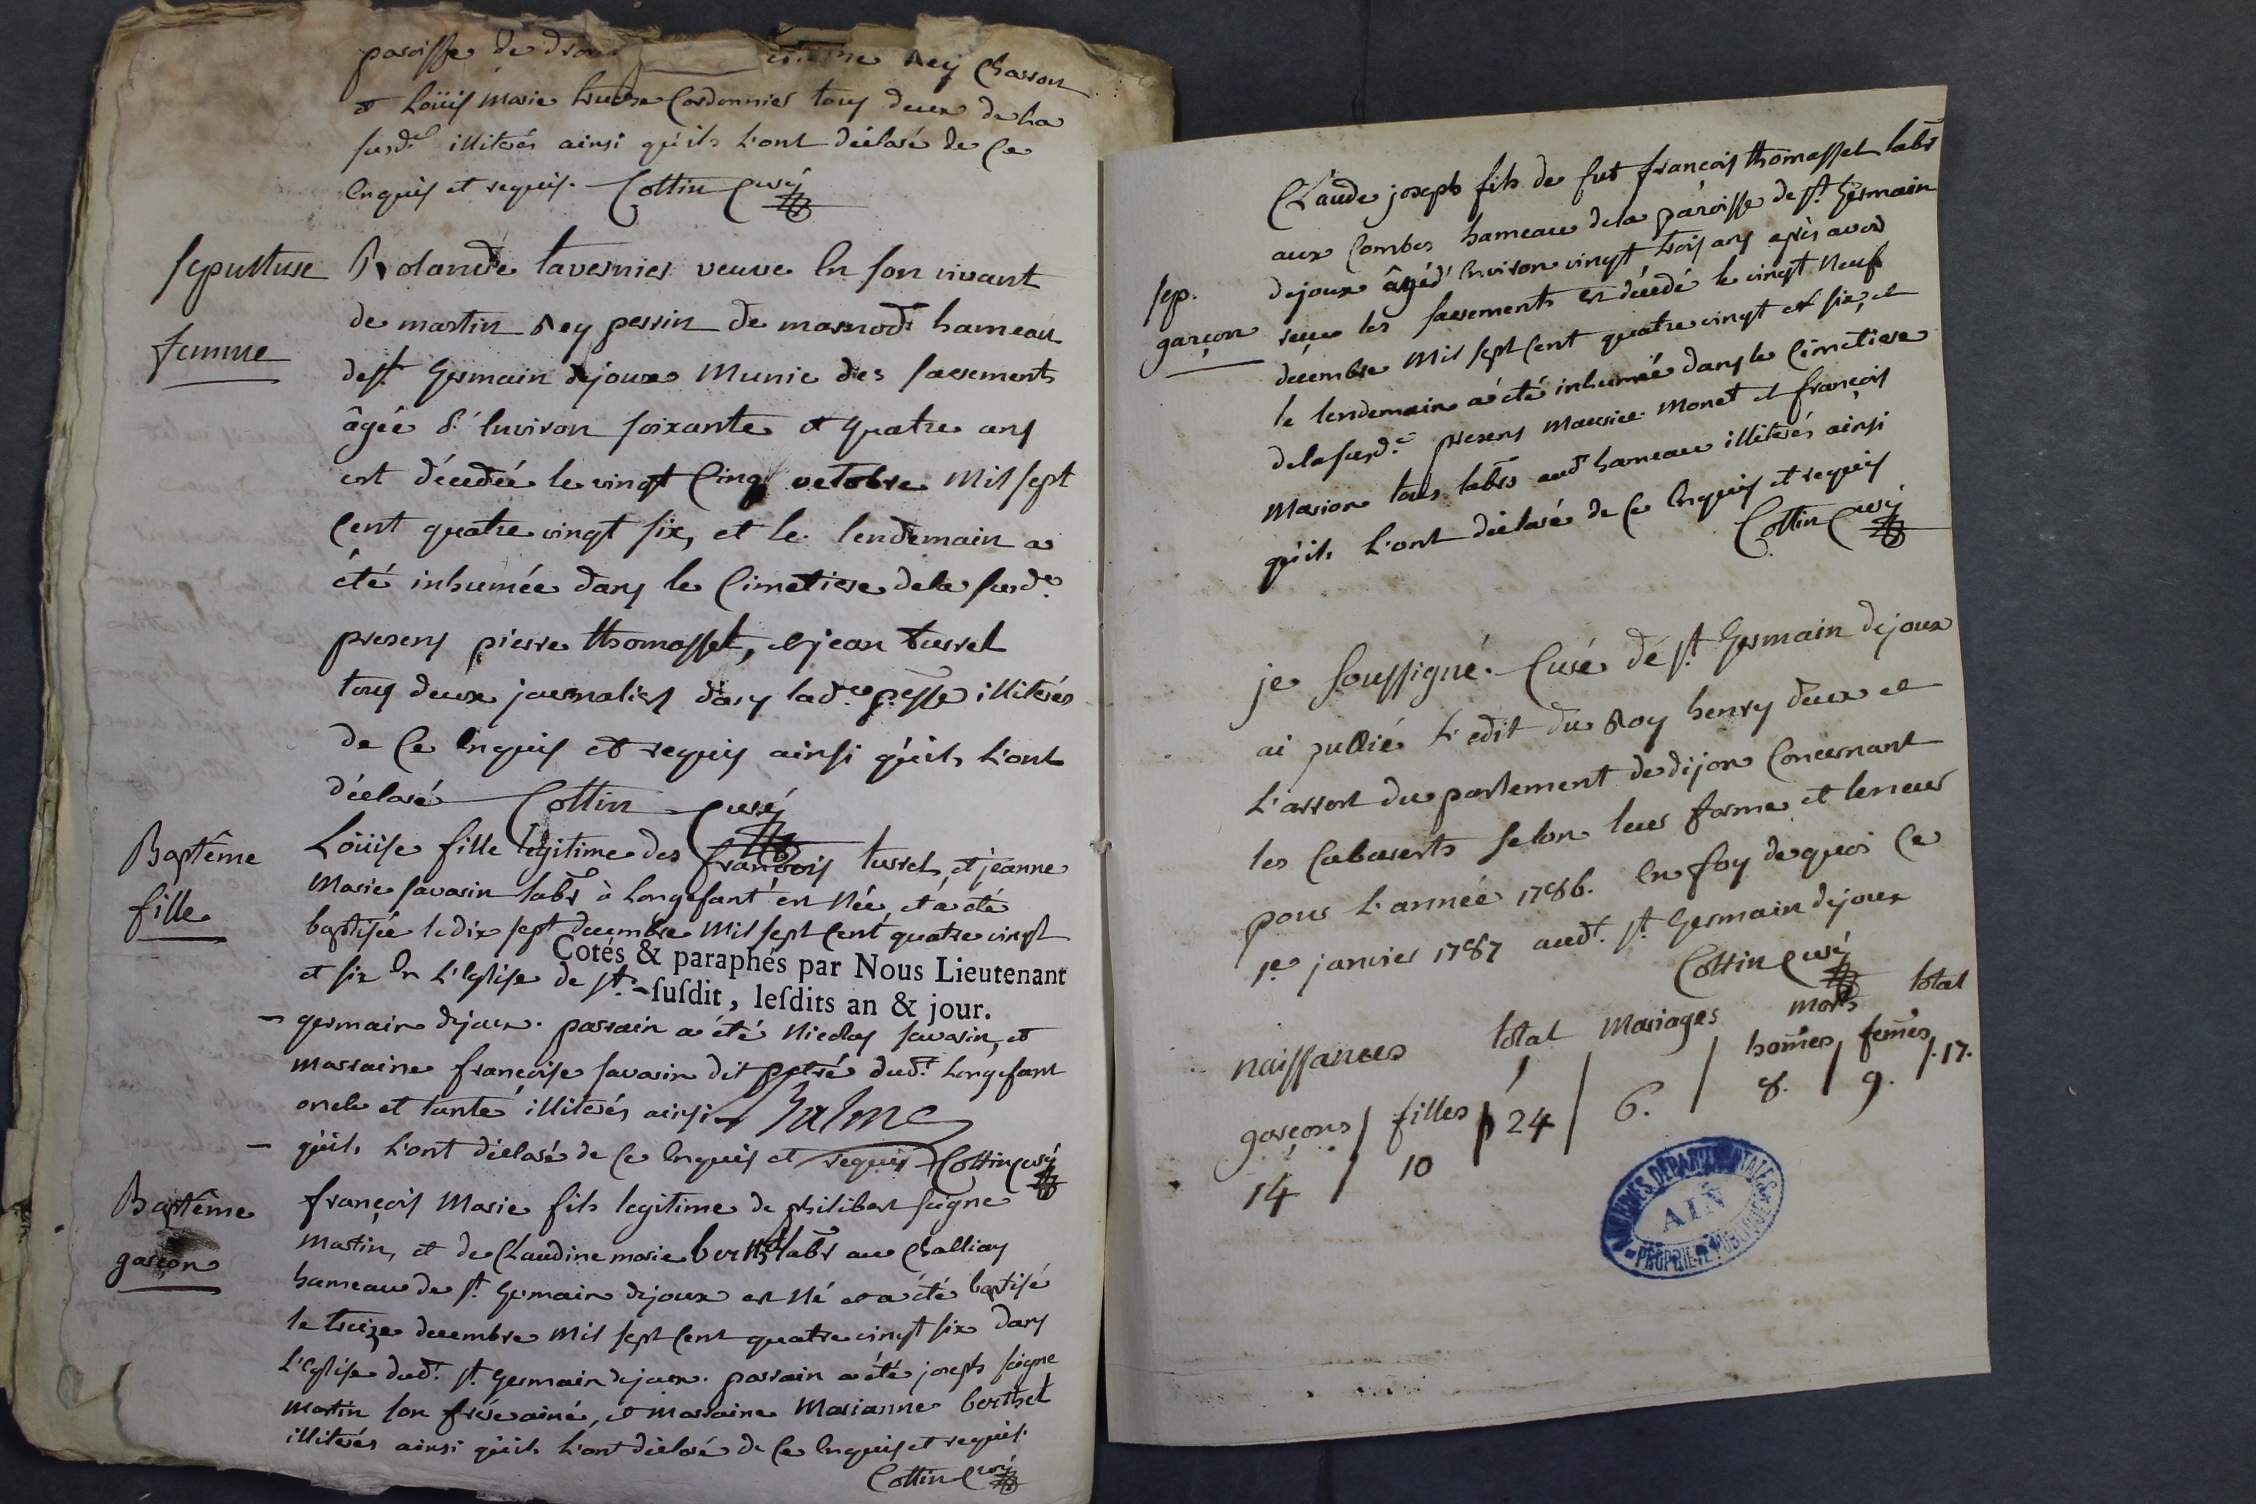 paroisse de Rey Charron
et Loüis Marie Cordonnier tous deux de La
susd.e illiterés ainsi qu'ils L'ont déclaré de Ce
Enquis et requis. Cottin Curé
sepulture
femme
Rolande tavernier veuve En son vivant
de martin Rey perrin de marnod hameau
de st Germain dejoux Munie des sacrements
âgée d'Environ soixante et quatre ans
est décedée le vingt Cinq octobre Mil sept
Cent quatre vingt six, et le lendemain a
été inhumée dans le Cimetiere de la susd.e
presens pierre thomasset, et jean turrel
tous deux journaliers dans lad.e p.esse illiterés
de Ce Enquis et requis ainsi qu'ils L'ont
déclaré Cottin Curé
Baptême
fille
Loüise fille legitime des françois turrel et jeanne
Marie savarin lab.r à Longefant est Née et a été
baptisée le dix sept decembre Mil sept Cent quatre vingt
et six En L'Eglise de st.
Cotés & paraphés par Nous Lieutenant
ſuſdit, leſdits an & jour.
germain dejoux. parrain a été Nicolas savarin, et
marraine françoise savarin dit dud.t Longefant
oncle et tante illiterés ainsi
qu'ils L'ont déclaré de Ce Enquis et requis Cottin Curé
Baptême
garçon
françois Marie fils legitime de philibert seigne
Martin, et de Claudine marie lab.r au Challiay
hameau de st. Germain dejoux est Né et a été baptisé
le treize decembre Mil sept Cent quatre vingt six dans
L'Eglise dud.t st. Germain dejoux. parrain a été joseph seigne
martin son frére ainé, et marraine Marianne berthet
illiterés ainsi qu'ils L'ont déclaré de Ce Enquis et requis.
Cottin Curé
sep.
garçon
Claude joseph fils de fut françois thomasset lab.r
aux Combes hameau de la paroisse de st. Germain
dejoux âgé d'Environ vingt trois ans après avoir
reçu les sacrements est décedé le vingt Neuf
decembre Mil sept Cent quatre vingt et six, et
le lendemain a été inhumé dans le Cimetiere
de la susd.e presens Maurice Monet et françois
Marion tous lab.rs aud.t hameau illiterés ainsi
qu'ils L'ont déclaré de Ce Enquis et requis
Cottin Curé
je soussigné Curé de st. Germain dejoux
ai publié L'edit du Roy henry deux et
L'arret du parlement de dijon Concernant
les Cabarets selon leur forme et teneur
pour L'année 1786. En foy de quoi Ce
1.er janvier 1787 aud.t st. Germain dejoux
Cottin Curé
naissances total Mariages morts total
garçons filles 24 6. hom̃es fem̃es 17.
14 10 8. 9.
ARCHIVES DEPARTEMENTALES
AIN
PROPRIETE PUBLIQUE